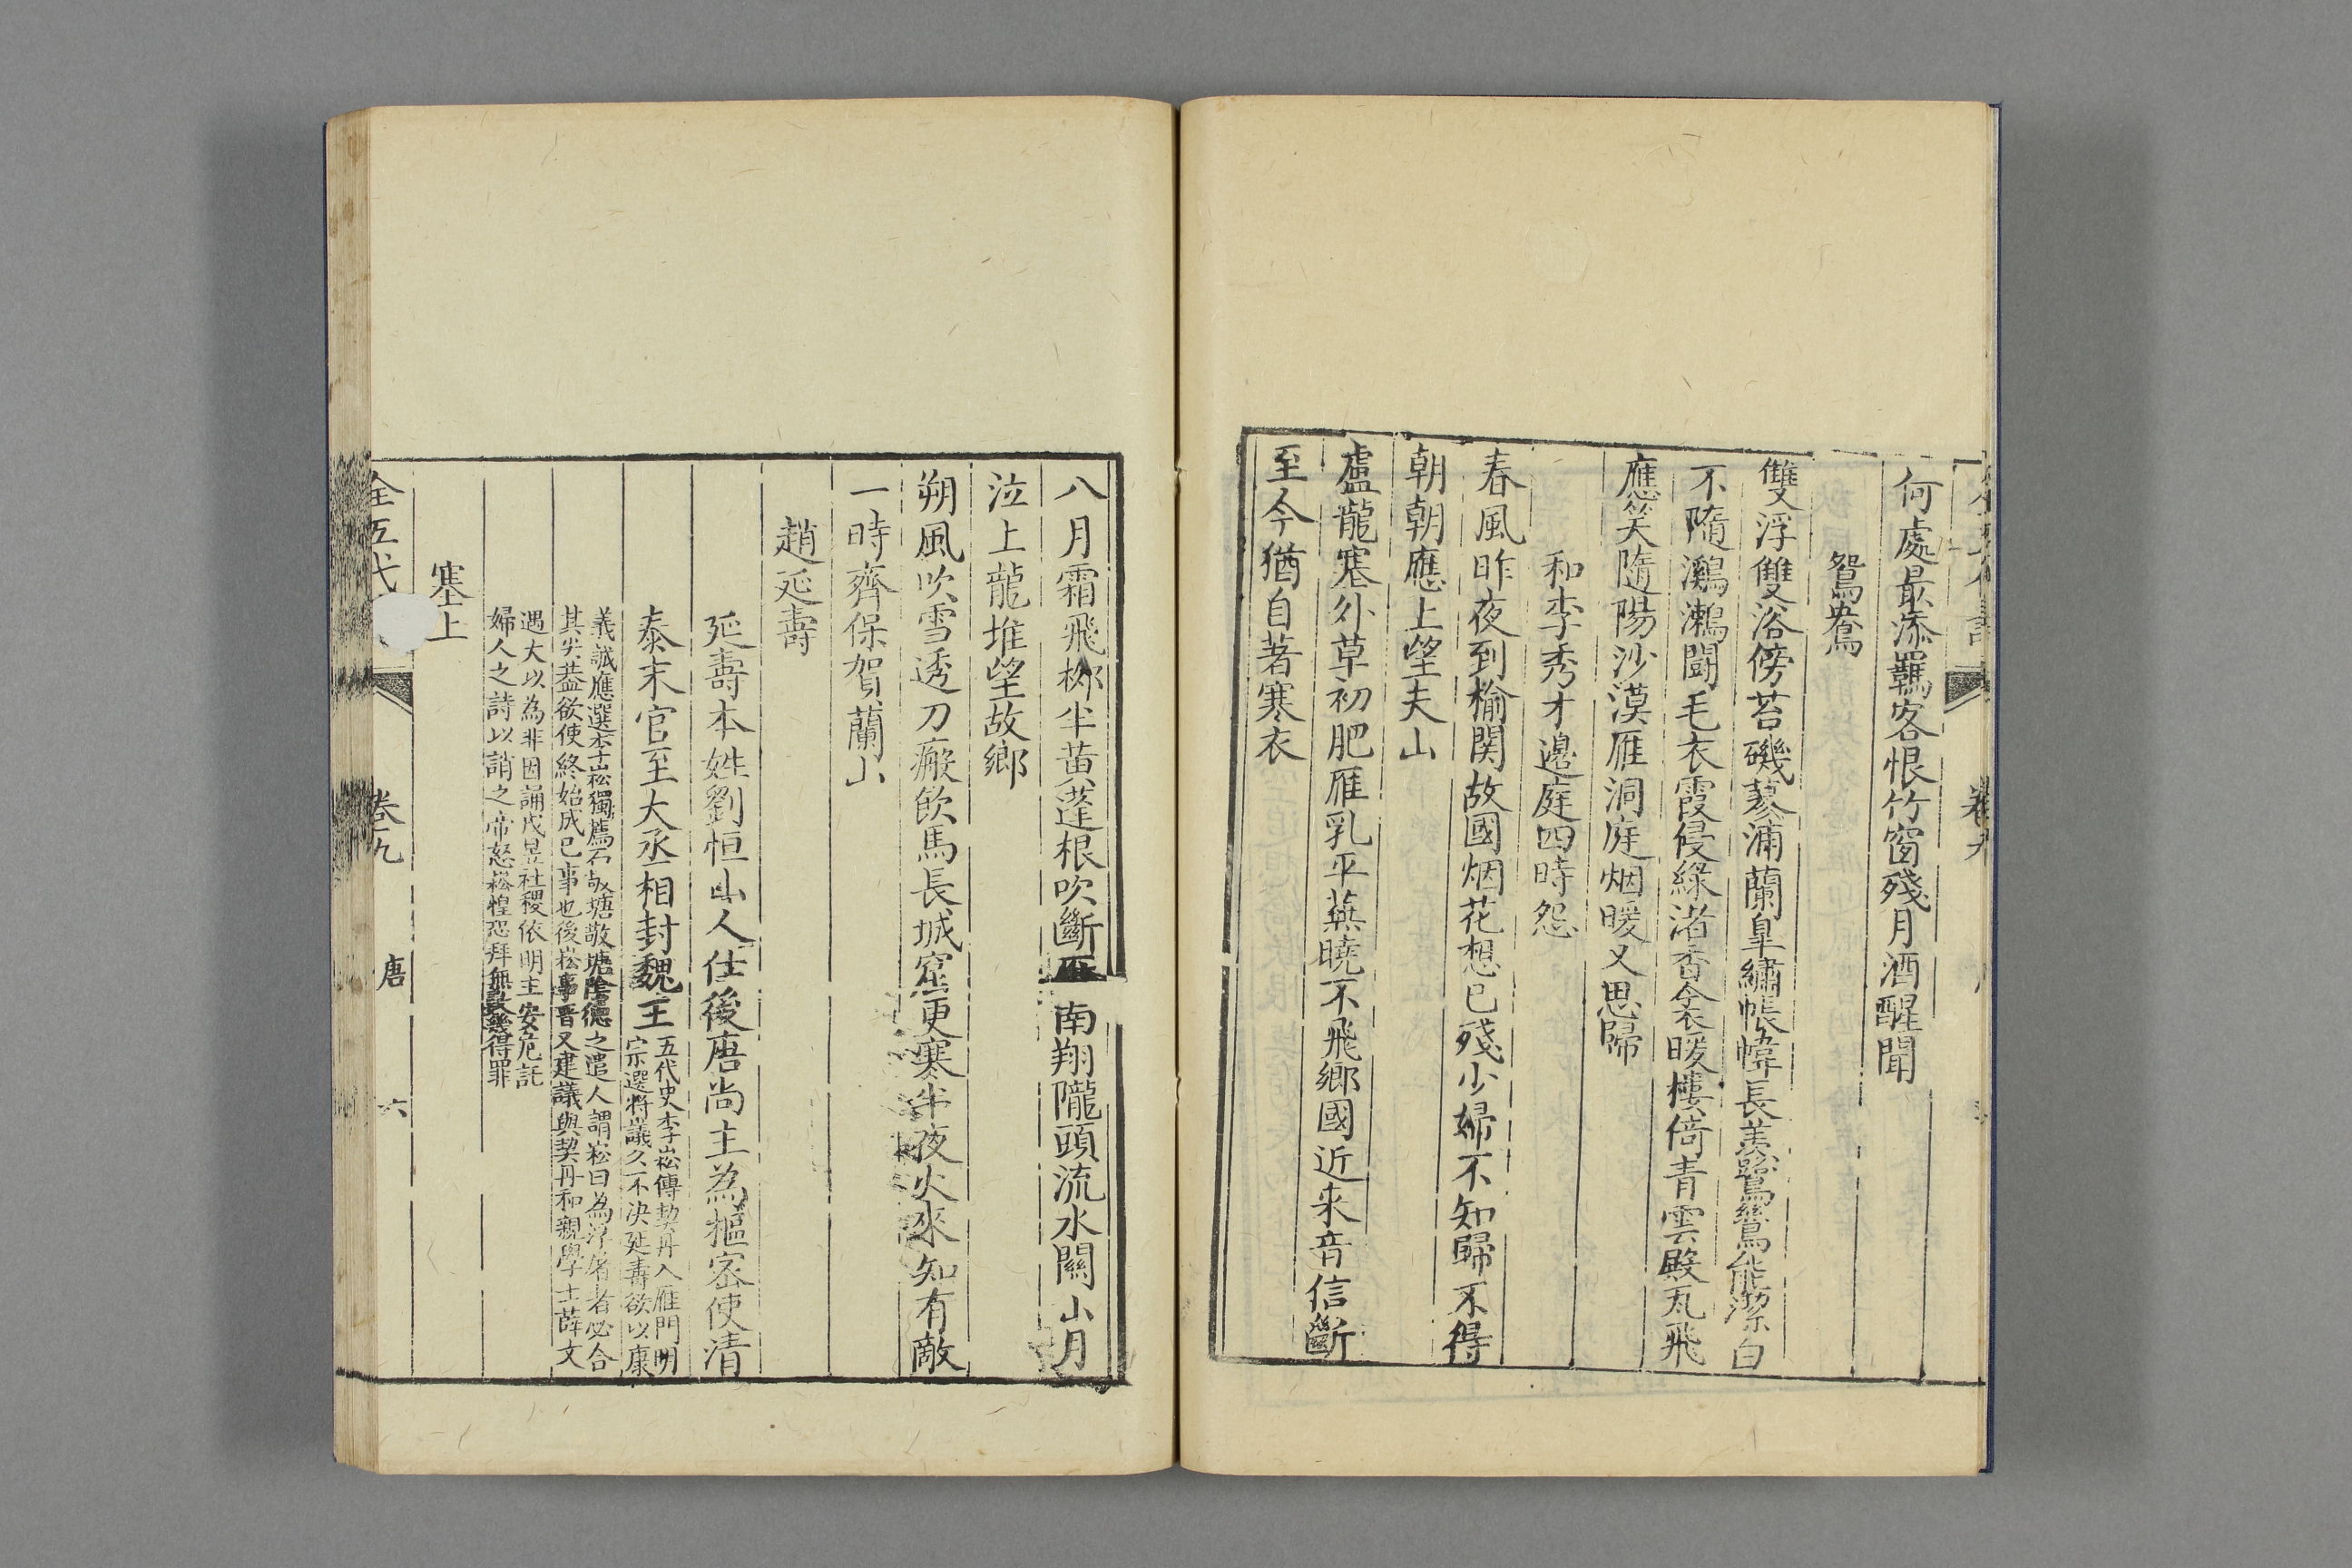 卷九
何處最添羈客恨竹窗殘月酒醒聞
鴛鴦
雙浮雙浴傍苔磯蓼浦蘭皐繡帳幃長羨鷺鷥能潔白
不隨鸂鶒鬪毛衣霞侵綠渚香衾暖樓倚青雲殿瓦飛
應笑隨陽沙漠雁洞庭烟暖又思歸
和李秀才邊庭四時怨
春風昨夜到榆関故國烟花想已殘少婦不知歸不得
朝朝應上望夫山
盧龍塞外草初肥雁乳平蕪曉不飛鄉國近来音信斷
至今猶自著寒衣
八月霜飛柳半黄蓬根吹斷雁南翔隴頭流水關山月
泣上龍堆望故鄉
朔風吹雪透刀瘢飲馬長城窟更寒半夜火來知有敵
一時齊保賀蘭山
趙延壽
延壽本姓劉恒山人仕後唐尚主為樞密使清
泰末官至大丞相封魏王
五代史李崧傳契丹入雁門明
宗選將議久不決延壽欲以康
義誠應選李崧獨薦石敬塘敬塘陰德之遣人謂崧曰為浮屠者必合
其尖葢欲使終始成已事也後崧事晋又建議與契丹和親學士薛文
遇大以為非因誦戊昱社稷依明主安危託
婦人之詩以誚之帝怒崧惶恐拜無數幾得罪
塞上
全五代
卷九
唐
六